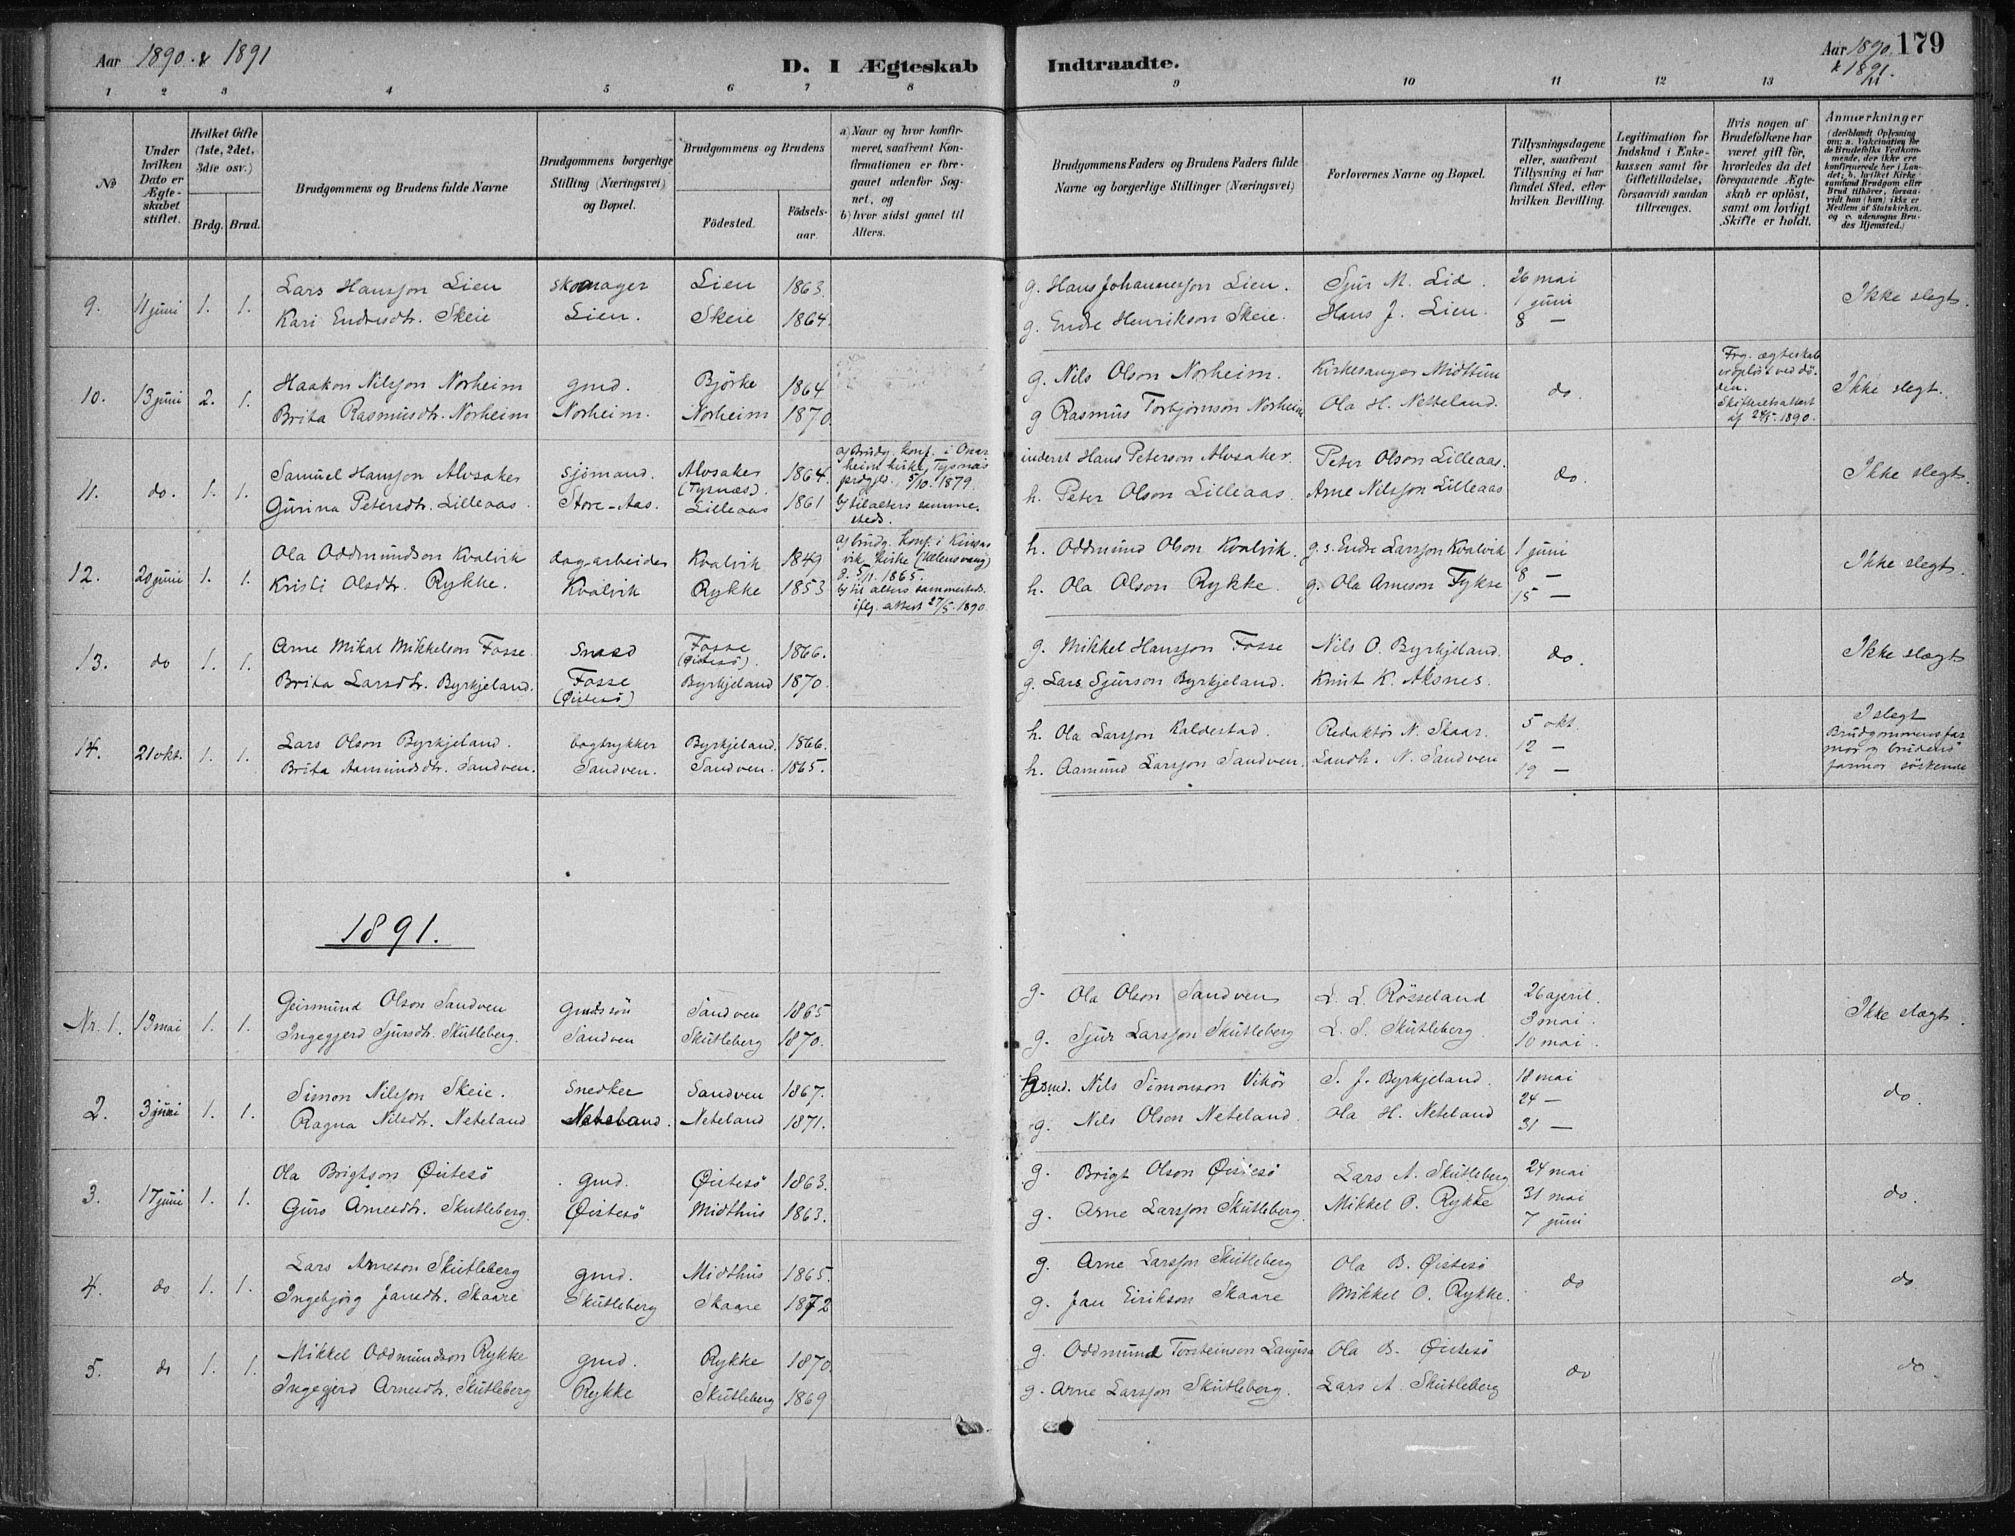 Aar 1890 & 1891
D. I Ægteskab Indtraadte.
Aar 1890 & 1891. 179
1 2 3 4 5 6 7 8 9 10 11 12 13
No
Under hvilken Dato er Ægteskabet stiftet.
Hvilket Gifte (1ste, 2det, 3die osv.)
Brdg. Brud.
Brudgommens og Brudens fulde Navne
Brudgommens borgerlige Stilling (Næringsvei) og Bopæl.
Brudgommens og Brudens
Födested. Födselsaar.
a) Naar og hvor konfirmeret, saafremt Konfirmationen er foregaaet udenfor Sognet, og
b) hvor sidst gaaet til Alters.
Brudgommens Faders og Brudens Faders fulde Navne og borgerlige Stillinger (Næringsvei)
Forlovernes Navne og Bopæl.
Tillysningsdagene eller, saafremt Tillysning ei har fundet Sted, efter hvilken Bevilling.
Legitimation for Indskud i Enkekassen samt for Giftetilladelse, forsaavidt saadan tiltrænges.
Hvis nogen af Brudefolkene har været gift för, hvorledes da det foregaaende Ægteskab er oplöst, samt om lovligt Skifte er holdt.
Anmærkninger (deriblandt Oplysning om: a. Vakcination for de Brudefolks Vedkommende, der ikke ere konfirmerede her i Landet; b. hvilket Kirkesamfund Brudgom eller Brud tilhörer, forsaavidt han (hun) ikke er Medlem af Statskirken, og c. udensogns Brudes Hjemsted.)
9. 11 juni 1. 1. Lars Hansson Lien skomager Lien 1863. g. Hans Johannesson Lien. Sjur M. Lid. 26 mai
Kari Endresdtr. Skeie Lien. Skeie 1864. g. Endre Henrikson Skeie. Hans J. Lien. 1 juni 8 — Ikke slegt.
10. 13 juni 2. 1. Haakon Nilsson Norheim gmd. Björke 1864 g. Nils Olson Norheim. Kirkesanger Midttun do. Frg. ægteskab er opløst ved döden. Skifteretsattest af 28/5. 1890. Ikke slegt.
Brita Rasmusdtr. Norheim Norheim. Norheim 1870. g Rasmus Torbjørnson Norheim Ola H. Netteland.
11. do. 1. 1. Samuel Hansson Alvsaker sjömand. Alvsaker (Tysnæs). 1864. a) Brudg. konf. i Onarheim kirke, Tysnæs prdgjld. 5/10. 1879. inderst Hans Peterson Alvsaker. Peter Olson Lilleaas. do. Ikke slegt.
Gurina Petersdtr. Lilleaas. Store-Aas. Lilleaas 1861 b) til alters sammesteds. h. Peter Olson Lilleaas. Arne Nilsson Lilleaas
12. 20 juni 1. 1. Ola Oddmundson Kvalvik dagarbeider Kvalvik 1849 a) brudg. konf. i Kinsarvik kirke (Ullensvang) 1865. h. Oddmund Olson Kvalvik. g. s. Endre Larsson Kvalvik 1 juni
Kristi Olsdtr. Rykke. Kvalvik Rykke 1853 b) til alters sammesteds. iflg. attest 27/5. 1890. h. Ola Olson Rykke. g. Ola Arneson Fykse 8 — 15 — Ikke slegt.
13. do 1. 1. Arne Mikal Mikkelson Fosse. Fosse (Øistesö). 1866. g. Mikkel Hansson Fosse Nils O. Byrkjeland. do. Ikke slægt
Brita Larsdtr. Byrkjeland. Fosse (Øistesö) Byrkjeland 1870. g. Lars Sjurson Byrkjeland. Knut K. Aksnes.
14. 21 okt. 1. 1. Lars Olson Byrkjeland. bogtrykker Byrkjeland. 1866. h. Ola Larsson Kaldestad. Redaktör N. Skaar. 5 okt. I slegt
Brita Aamundsdtr. Sandven. Sandven. Sandven. 1865. h. Aamund Larsson Sandven. Landh. N. Sandven 12 — 19 — Brudgommens farmor og brudens farmor söskende
1891.
Nr. 1. 13 mai 1. 1. Geirmund Olson Sandven gmdssön Sandven 1865 g. Ola Olson Sandven L. L. Rösseland 26 april.
Ingegjerd Sjursdtr. Skutleberg. Sandven Skutleberg 1870. g. Sjur Larsson Skutleberg L. S. Skutleberg 3 mai. 10 mai. Ikke slægt.
2. 3 juni 1. 1. Simon Nilsson Skeie. Snedker Sandven 1867. husmd. Nils Simonson Vikör S. J. Byrkjeland. 18 mai
Ragna Nilsdtr. Neteland Neteland. Neteland 1871. g. Nils Olson Neteland. Ola H. Neteland 24 — 31 — do.
3. 17 juni 1. 1. Ola Brigtson Øistesö gmd. Øistesö 1863. g. Brigt Olson Øistesö Lars A. Skutleberg 24 mai
Guro Arnesdtr. Skutleberg. Øistesö Midthus 1863. g. Arne Larsson Skutleberg. Mikkel O. Rykke 31 mai 7 juni do.
4. do 1. 1. Lars Arneson Skutleberg gmd. Midthus 1865. g. Arne Larsson Skutleberg Ola B. Øistesö do do
Ingebjörg Jansdtr. Skaare Skutleberg Skaare 1872 g. Jan Eirikson Skaare Mikkel O. Rykke.
5. do 1. 1. Mikkel Oddmundson Rykke gmd. Rykke 1870. g. Oddmund Torsteinson Laugesa Ola B. Øistesö do do
Ingegjerd Arnesdtr. Skutleberg Rykke Skutleberg 1869 g. Arne Larsson Skutleberg. Lars A. Skutleberg